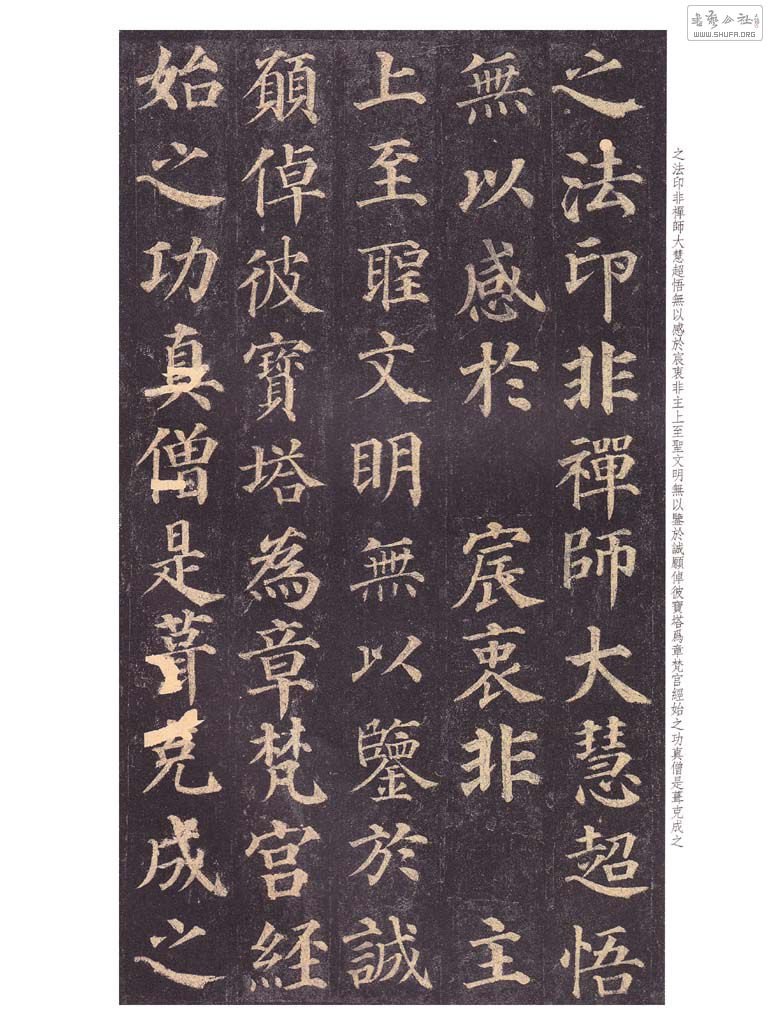 書藝公社
WWW.SHUFA.ORG
之法印非禪師大慧超悟無以感於宸衷非主上至聖文明無以鑒於誠願倬彼寶塔為章梵宮經始之功真僧是葺克成之
之法印非禪師大慧超悟
無以感於宸衷非主
上至聖文明無以鑒於誠
願倬彼寶塔為章梵宮經
始之功真僧是葺克成之